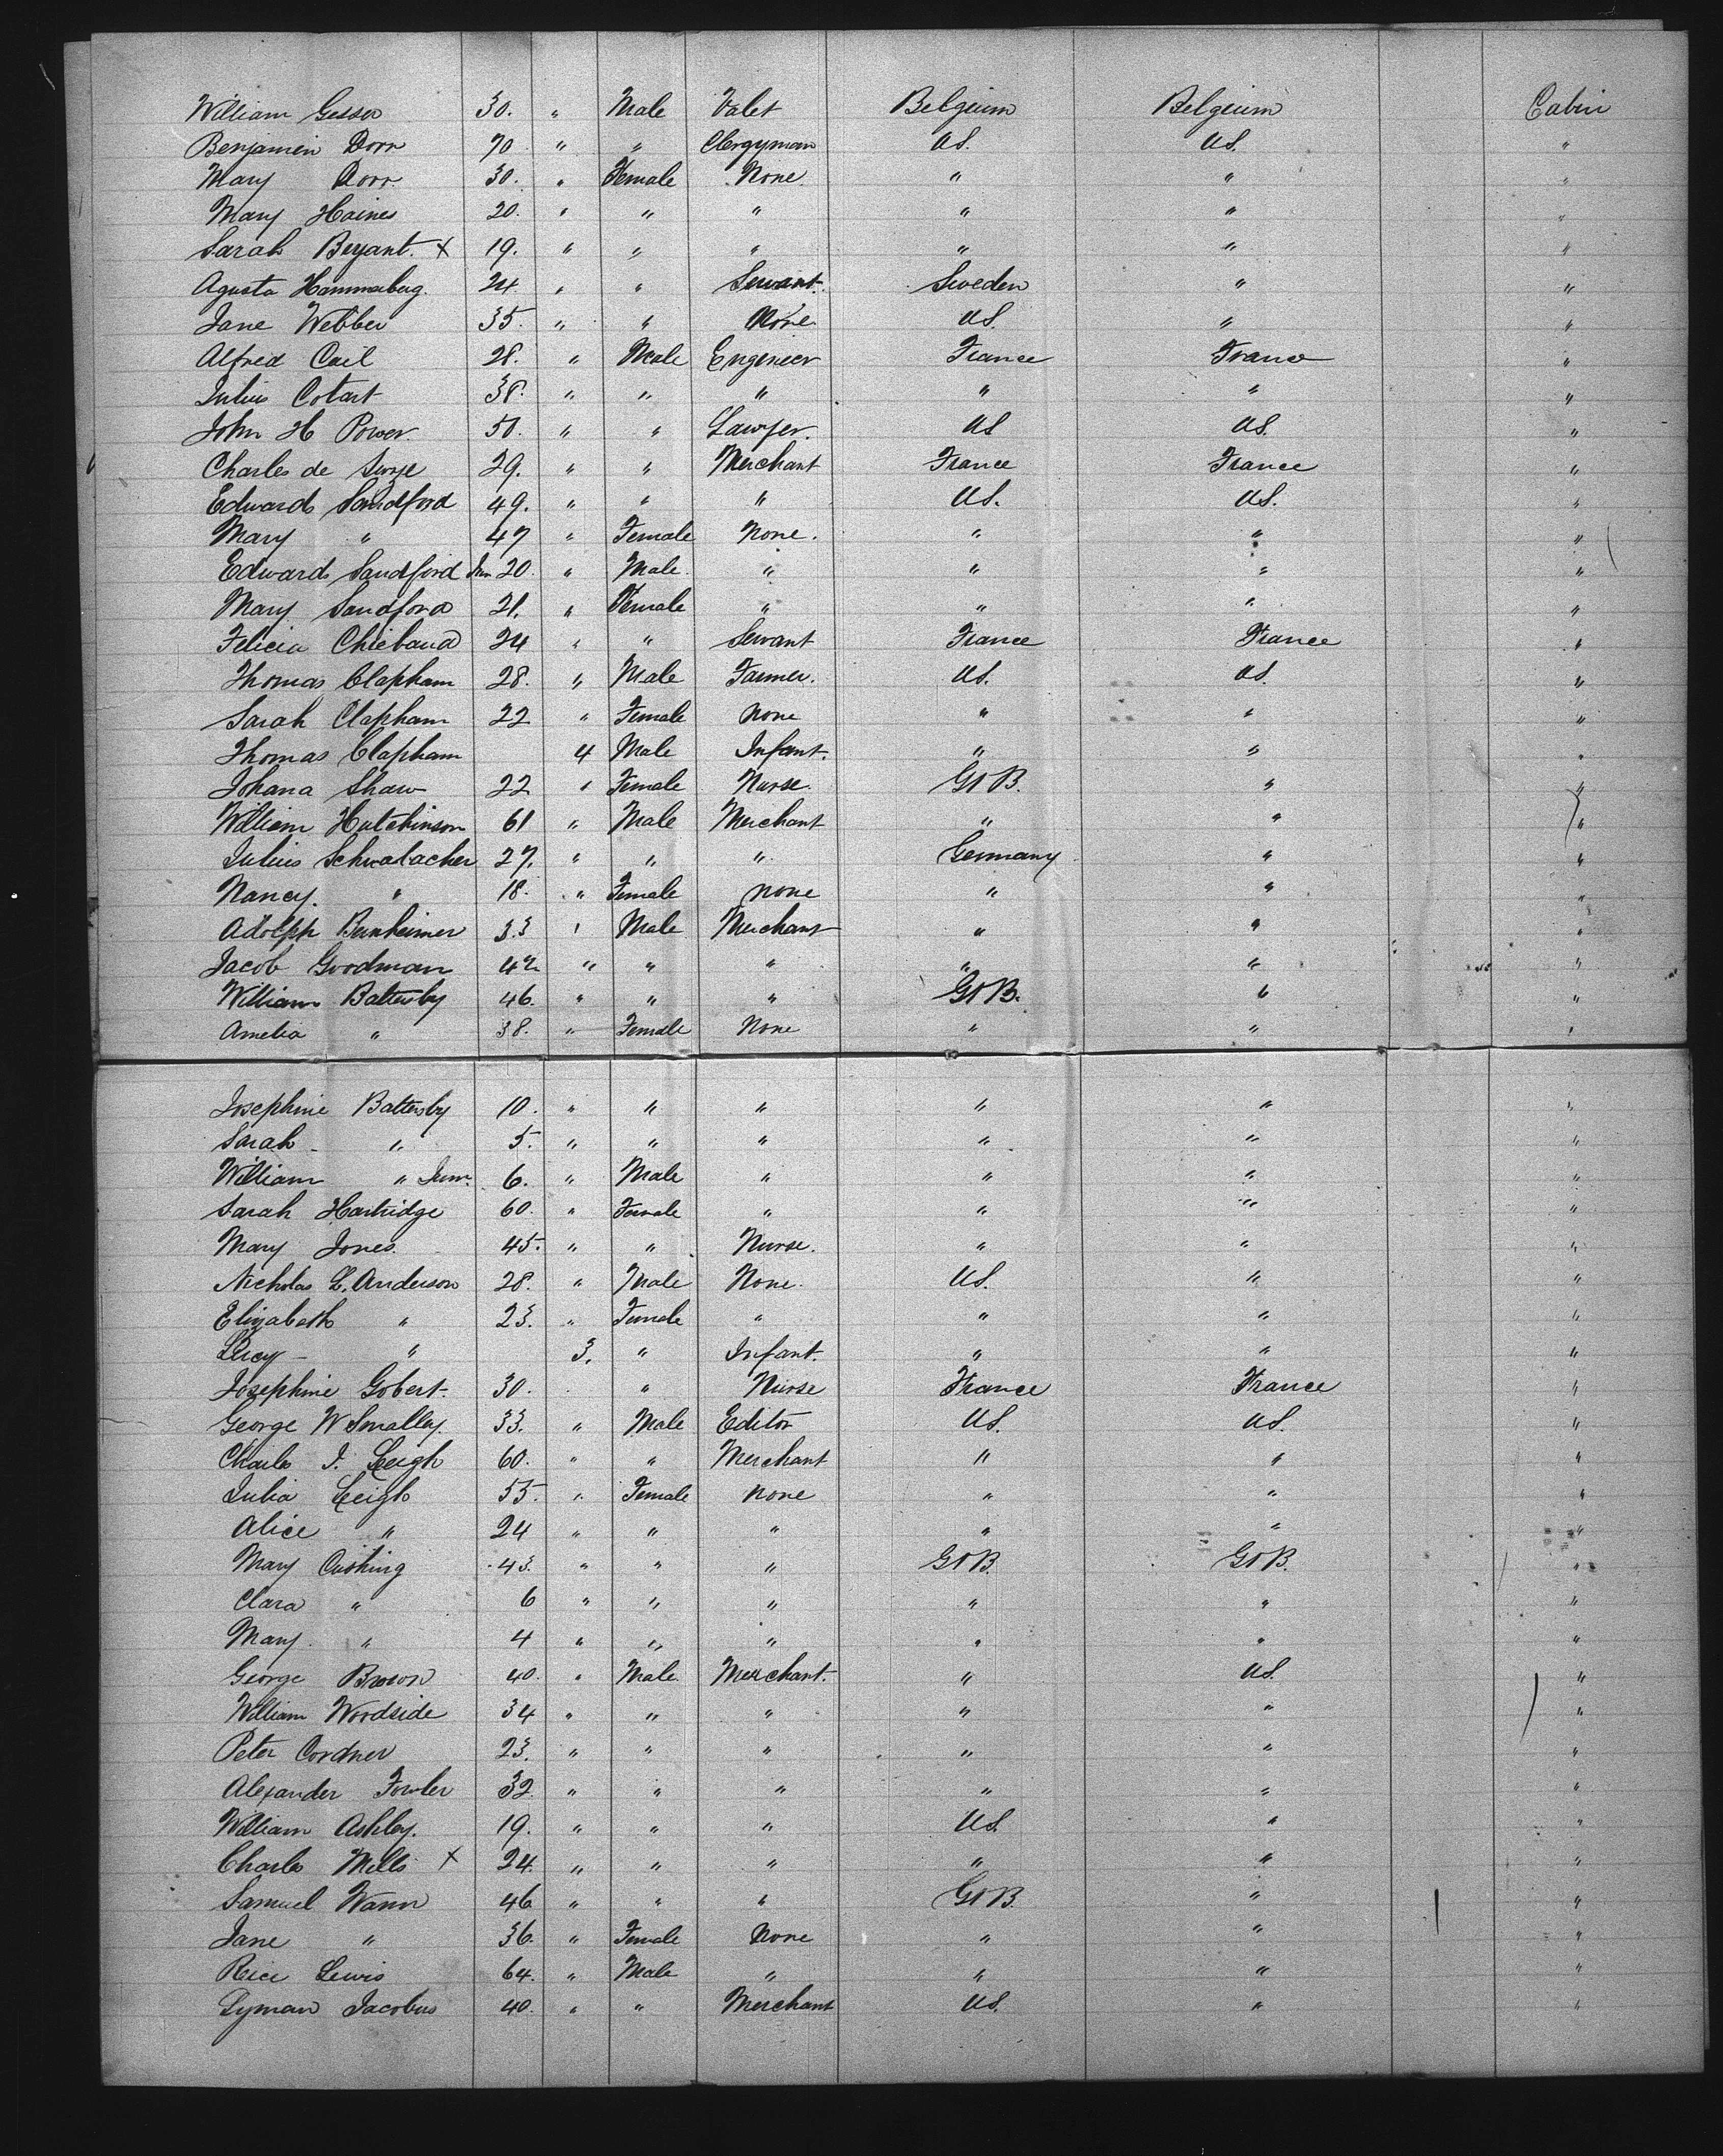 William Gesser 30. " Male Valet Belgium Belgium Cabin
Benjamin Dorr 70 " " Clergyman US. US. "
Mary Dorr 30. " Female None " " "
Mary Haines 20. " " " " " "
Sarah Bryant. x 19. " " " " " "
Agusta Hammerberg. 24 " " Servant. Sweden " "
Jane Webber 35. " " None US. " "
Alfred Cail 28. " Male Engineer France France "
Julius Cotart 38. " " " " " "
John H Power. 50. " " Lawyer. US US. "
Charles de 29. " " Merchant France France "
Edward Sandford 49. " " " US. US. "
Mary " 47 " Female None. " " "
Edward Sandford Jun 20. " Male. " " " "
Mary Sandford 21. " Female " " " "
Felicia Chiebaud 24 " " Servant France France "
Thomas Clapham 28. " Male Farmer. US. US. "
Sarah Clapham 22 " Female None " " "
Thomas Clapham 4 Male Infant. " " "
Johana Shaw 22 " Female Nurse. Gt B. " "
William Hutchinson 61 " Male Merchant " " "
Julius Schwabacher 27. " " " Germany " "
Nancy. " 18. " Female none " " "
Adolph Bernheimer 33 " Male Merchant " " "
Jacob Goodman 42 " " " " " "
William Battersby 46. " " " Gt B. " "
Amelia " 38. " Female None " " "
Josephine Battersby 10. " " " " " "
Sarah " 5. " " " " " "
William " Junr. 6. " Male " " " "
Sarah Hartridge 60. " Female " " " "
Mary Jones. 45. " " Nurse. " " "
Nicholas L. Anderson 28. " Male None. US. " "
Elizabeth " 23. " Female " " " "
Lucy " 3. " Infant. " " "
Josephine Gobert. 30. " Nurse France France "
George W Smalley. 33. " Male Editor US. US. "
Charles I. Leigh 60. " " Merchant " " "
Julia Leigh 55. " Female none " " "
Alice " 24 " " " " " "
Mary Cushing 43. " " " Gt B. Gt B. "
Clara " 6 " " " " " "
Mary. " 4 " " " " " "
George Brown 40. " Male Merchant. " US. "
William Woodside 34 " " " " " "
Peter Cordner 23. " " " " " "
Alexander Fowler 32. " " " " " "
William Ashley. 19. " " " US. " "
Charles Mills x 24. " " " " " "
Samuel Wann 46 " " " Gt B. " "
Jane " 36. " Female None " " "
Rice Lewis 64. " Male " " " "
Lyman Jacobus 40. " " Merchant US. " "